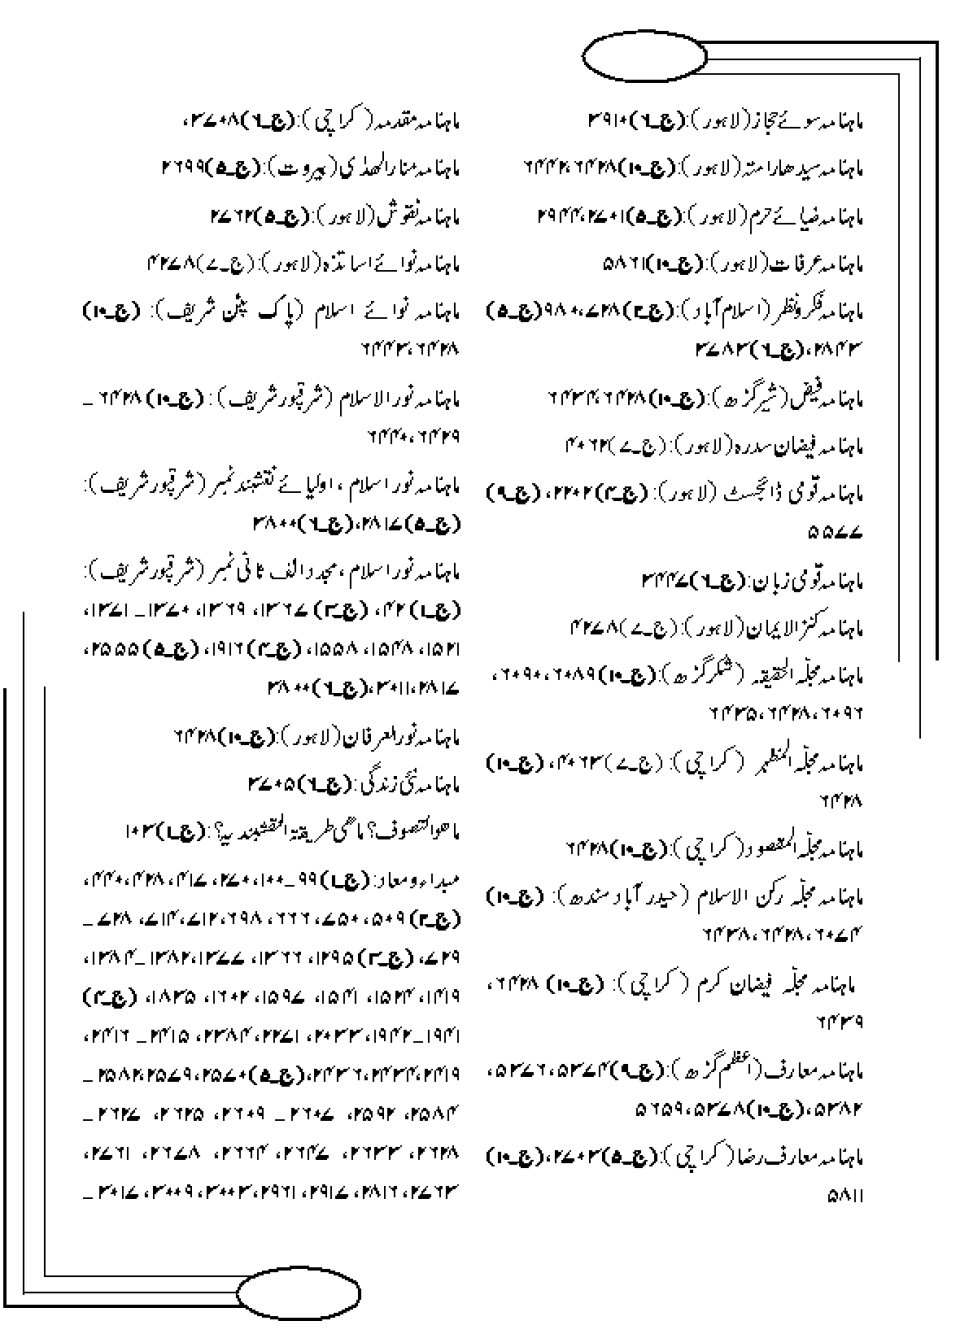 ماہنامہ سوئے حجاز (لاہور): (ج۔۶) ۳۹۱۰
ماہنامہ سیدھا راستہ (لاہور): (ج۔۱۰) ۶۴۲۸، ۶۴۴۲
ماہنامہ ضیائے حرم (لاہور): (ج۔۵) ۲۷۰۱، ۲۹۴۴
ماہنامہ عرفات (لاہور): (ج۔۱۰) ۵۸۶۱
ماہنامہ فکر ونظر (اسلام آباد): (ج۔۲) ۷۲۸، ۹۸۰ (ج۔۵)
۲۸۴۳، (ج۔۶) ۳۷۸۳
ماہنامہ فیض (شیرگڑھ): (ج۔۱۰) ۶۴۲۸، ۶۴۳۴
ماہنامہ فیضان سدرہ (لاہور): (ج۔۷) ۴۰۶۲
ماہنامہ قومی ڈائجسٹ (لاہور): (ج۔۴) ۲۲۰۲، (ج۔۹)
۵۵۷۷
ماہنامہ قومی زبان: (ج۔۶) ۳۴۴۷
ماہنامہ کنزالایمان (لاہور): (ج۔۷) ۴۲۷۸
ماہنامہ مجلّہ الحقیقہ (شکرگڑھ): (ج۔۱۰) ۶۰۸۹، ۶۰۹۰،
۶۰۹۶، ۶۴۲۸، ۶۴۳۵
ماہنامہ مجلّہ المظہر (کراچی): (ج۔۷) ۴۰۶۳، (ج۔۱۰)
۶۴۲۸
ماہنامہ مجلّہ المقصود (کراچی): (ج۔۱۰) ۶۴۲۸
ماہنامہ مجلّہ رکن الاسلام (حیدر آباد سندھ): (ج۔۱۰)
۶۰۷۴، ۶۴۲۸، ۶۴۳۸
ماہنامہ مجلّہ فیضان کرم (کراچی): (ج۔۱۰) ۶۴۲۸،
۶۴۳۹
ماہنامہ معارف (اعظم گڑھ): (ج۔۹) ۵۳۷۴، ۵۳۷۶،
۵۳۸۲، (ج۔۱۰) ۵۳۷۸، ۵۶۵۹
ماہنامہ معارف رضا (کراچی): (ج۔۵) ۲۷۰۳، (ج۔۱۰)
۵۸۱۱
ماہنامہ مقدمہ (کراچی): (ج۔۶) ۳۷۰۸،
ماہنامہ منار الھدٰی (بیروت): (ج۔۵) ۲۶۹۹
ماہنامہ نقوش (لاہور): (ج۔۵) ۲۷۶۲
ماہنامہ نوائے اساتذہ (لاہور): (ج۔۷) ۴۲۷۸
ماہنامہ نوائے اسلام (پاک پٹن شریف): (ج۔۱۰)
۶۴۲۸، ۶۴۴۳
ماہنامہ نور الاسلام (شرقپور شریف): (ج۔۱۰) ۶۴۲۸ ۔
۶۴۲۹، ۶۴۴۰
ماہنامہ نور اسلام، اولیائے نقشبند نمبر (شرقپور شریف):
(ج۔۵) ۲۸۱۷، (ج۔۶) ۳۸۰۰
ماہنامہ نور اسلام، مجدد الف ثانی نمبر (شرقپور شریف):
(ج۔۱) ۴۲، (ج۔۳) ۱۳۶۷، ۱۳۶۹، ۱۳۷۰۔ ۱۳۷۱،
۱۵۲۱، ۱۵۴۸، ۱۵۵۸، (ج۔۴) ۱۹۱۶، (ج۔۵) ۲۵۵۵،
۲۸۱۷، ۳۰۱۱، (ج۔۶) ۳۸۰۰
ماہنامہ نورالعرفان (لاہور): (ج۔۱۰) ۶۴۲۸
ماہنامہ نئی زندگی: (ج۔۶) ۳۷۰۵
ماھو التصوف؟ ماھی طریقۃ النقشبندیہ؟: (ج۔۱) ۱۰۳
مبداء ومعاد: (ج۔۱) ۹۹۔۱۰۰، ۲۷۰، ۴۱۷، ۴۲۸، ۴۴۰،
(ج۔۲) ۵۰۹، ۶۵۰، ۶۶۶، ۶۹۸، ۷۱۲، ۷۱۴، ۷۲۸۔
۷۲۹، (ج۔۳) ۱۲۹۵، ۱۳۶۶، ۱۳۷۷، ۱۳۸۲۔۱۳۸۴،
۱۴۱۹، ۱۵۲۴، ۱۵۴۱، ۱۵۹۷، ۱۶۰۲، ۱۸۳۵، (ج۔۴)
۱۹۴۱۔۱۹۴۲، ۲۰۳۳، ۲۲۷۱، ۲۳۸۴، ۲۴۱۵۔ ۲۴۱۶،
۲۴۱۹، ۲۴۳۴، ۲۴۳۶، (ج۔۵) ۲۵۷۰، ۲۵۷۹، ۲۵۸۲۔
۲۵۸۴، ۲۵۹۲، ۲۶۰۷۔ ۲۶۰۹، ۲۶۲۵، ۲۶۲۷۔
۲۶۲۸، ۲۶۳۳، ۲۶۴۷، ۲۶۶۴، ۲۶۷۸، ۲۷۶۱،
۲۷۶۳، ۲۸۱۶، ۲۹۱۷، ۲۹۶۱، ۳۰۰۳، ۳۰۰۹، ۳۰۱۷۔